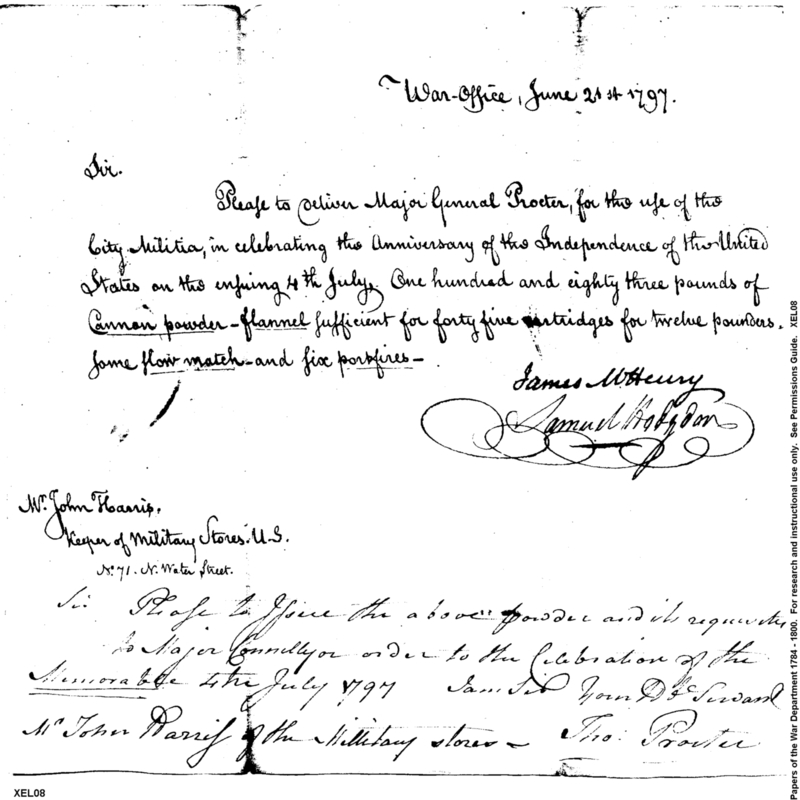 War-Office, June 21st 1797.
Sir.
Please to Deliver Major General Procter, for the use of the
City Militia, in celebrating the Anniversary of the Independence of the United
States on the ensuing 4th July, One hundred and eighty three pounds of
Cannon powder - flannel sufficient for forty five cartridges for twelve pounders.
some slow match - and six portfires -
James McHenry
Samuel Hodgdon
Mr. John Harris.
Keeper of Military Stores. U.S.
No. 71. N. Water Street.
Sir Please to Issue the above powder and its requisites
to Major Connelly or order to the Celebration of the
Memorable 4the July 1797 I am Sir Your Servant
Mr John Harris of the Millitary stores - Tho: Procter
XEL08
Papers of the War Department 1784 - 1800. For research and instructional use only. See Permissions Guide. XEL08